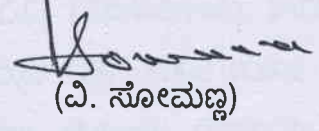 (ವಿ. ಸೋಮಣ್ಣ)